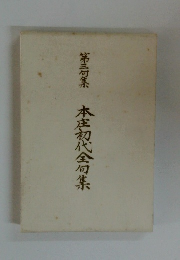 第三句集
本庄初代全句集